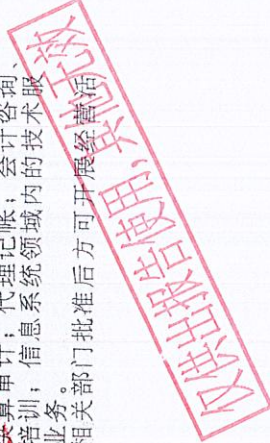 算审计；代理记帐；会计咨询、
培训；信息系统领域内的技术服
业务。
相关部门批准后方可开展经营活
仅供出报告使用，其他无效